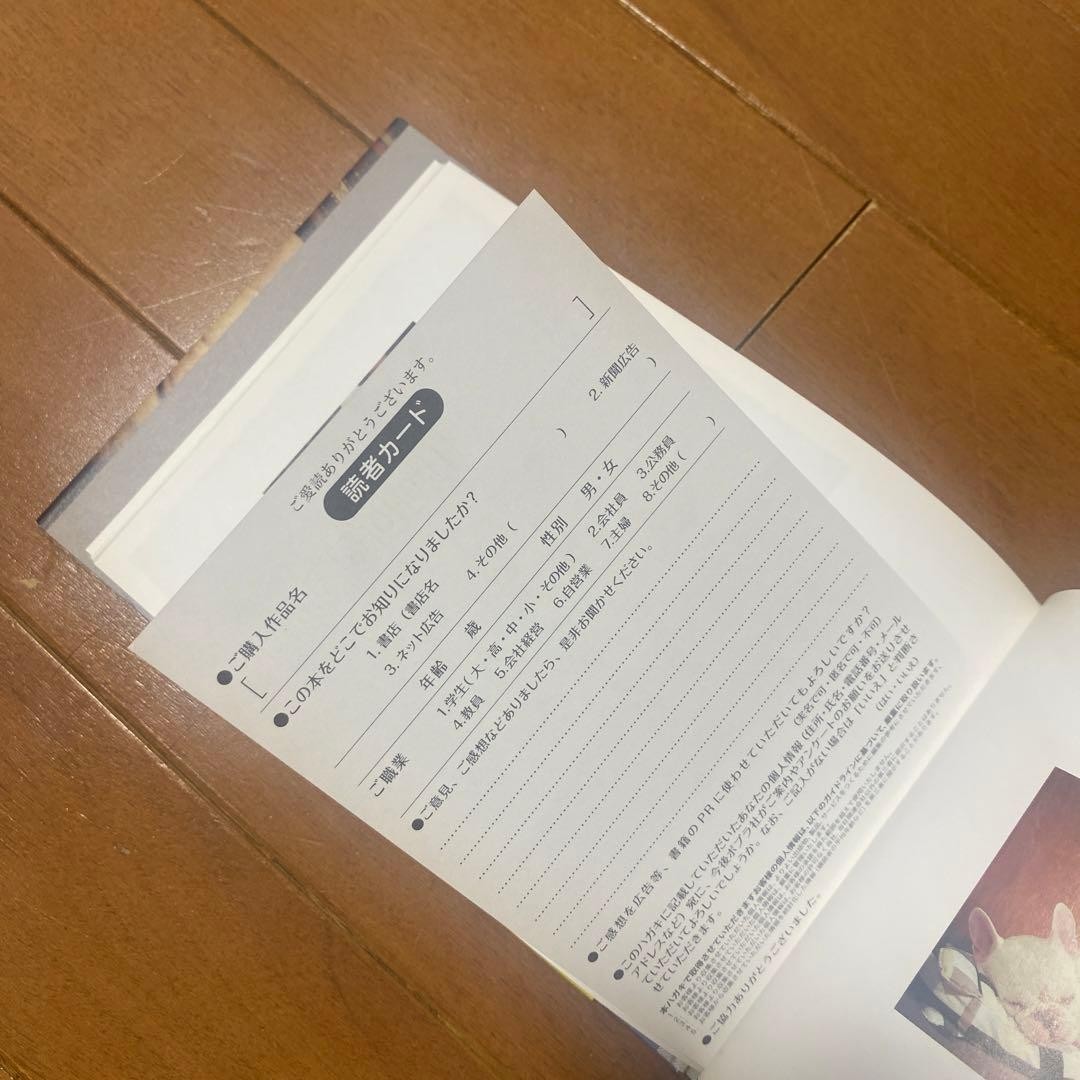 ご愛読ありがとうございます。
読者カード
●ご購入作品名
[ ]
●この本をどこでお知りになりましたか?
1.書店(書店名 )
2.新聞広告
3.ネット広告 4.その他( )
年齢 歳 性別 男・女
ご職業
1.学生(大・高・中・小・その他) 2.会社員 3.公務員
4.教員 5.会社経営 6.自営業 7.主婦 8.その他( )
●ご意見、ご感想などありましたら、是非お聞かせください。
●ご感想を広告等、書籍のPRに使わせていただいてもよろしいですか?
(実名で可・匿名で可・不可)
●このハガキに記載していただいたあなたの個人情報(住所・氏名・電話番号・メール
アドレスなど)宛に、今後ポプラ社がご案内やアンケートのお願いをお送りさせ
ていただいてよろしいでしょうか。なお、ご記入がない場合は「いいえ」と判断さ
せていただきます。 (はい・いいえ)
本ハガキで取得させていただきますお客様の個人情報は、以下のガイドラインに基づいて、厳重に取り扱います。
●ご協力ありがとうございました。